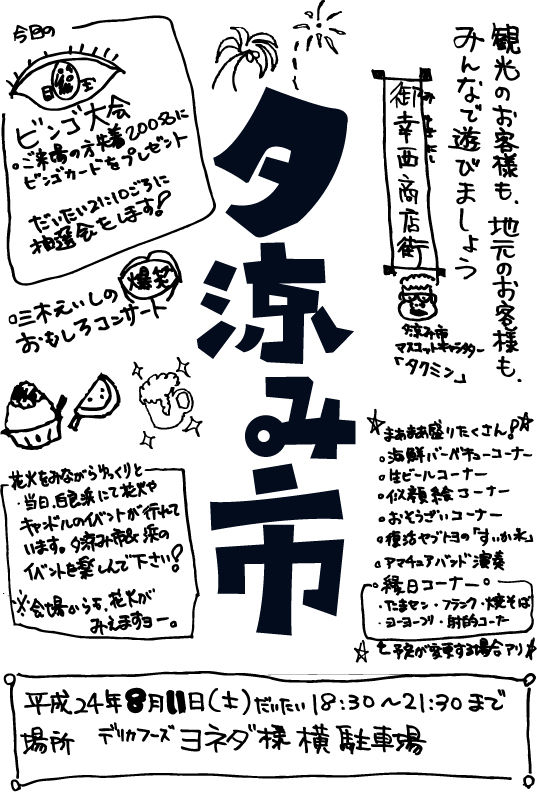 観光のお客様も、地元のお客様も、
みんなで遊びましょう
御幸西商店街
夕涼み市
マスコットキャラクター
「タクミン」
夕涼み市
今日の
目玉
ビンゴ大会
・ご来場の方先着200名に
ビンゴカードをプレゼント
だいたい21:10ごろに
抽選会をします!
。三木えいしの
爆笑
おもしろコンサート
花火をみながらゆっくりと
・当日、白良浜にて花火や
キャンドルのイベントが行れて
います。夕涼み市&浜の
イベントを楽しんで下さい!
※会場からも、花火が
みえますヨー。
☆まぁまぁ盛りたくさん!☆
。海鮮バーベキューコーナー
。生ビールコーナー
。似顔絵コーナー
。おそうざいコーナー
。復活ヤブトヨの「すいか氷」
。アマチュアバンド演奏
。縁日コーナー。
・たまセン・フランク・焼そば
・ヨーヨーつり・射的コーナー
☆も予定が変更する場合アリ☆
平成24年8月11日(土)だいたい18:30〜21:30まで
場所 デリカフーズ ヨネダ様横駐車場